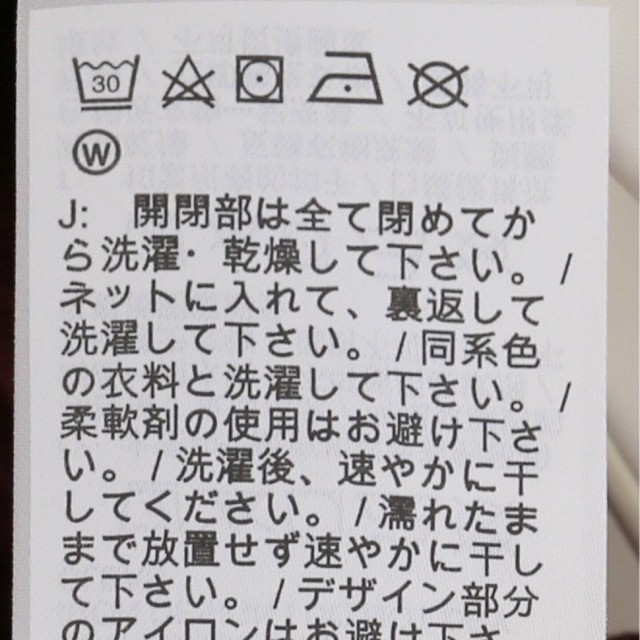 30
W
J: 開閉部は全て閉めてか
ら洗濯・乾燥して下さい。 /
ネットに入れて、裏返して
洗濯して下さい。 / 同系色
の衣料と洗濯して下さい。 /
柔軟剤の使用はお避け下さ
い。 / 洗濯後、速やかに干
してください。 / 濡れたま
まで放置せず速やかに干し
て下さい。 / デザイン部分
のアイロンはお避け下さ